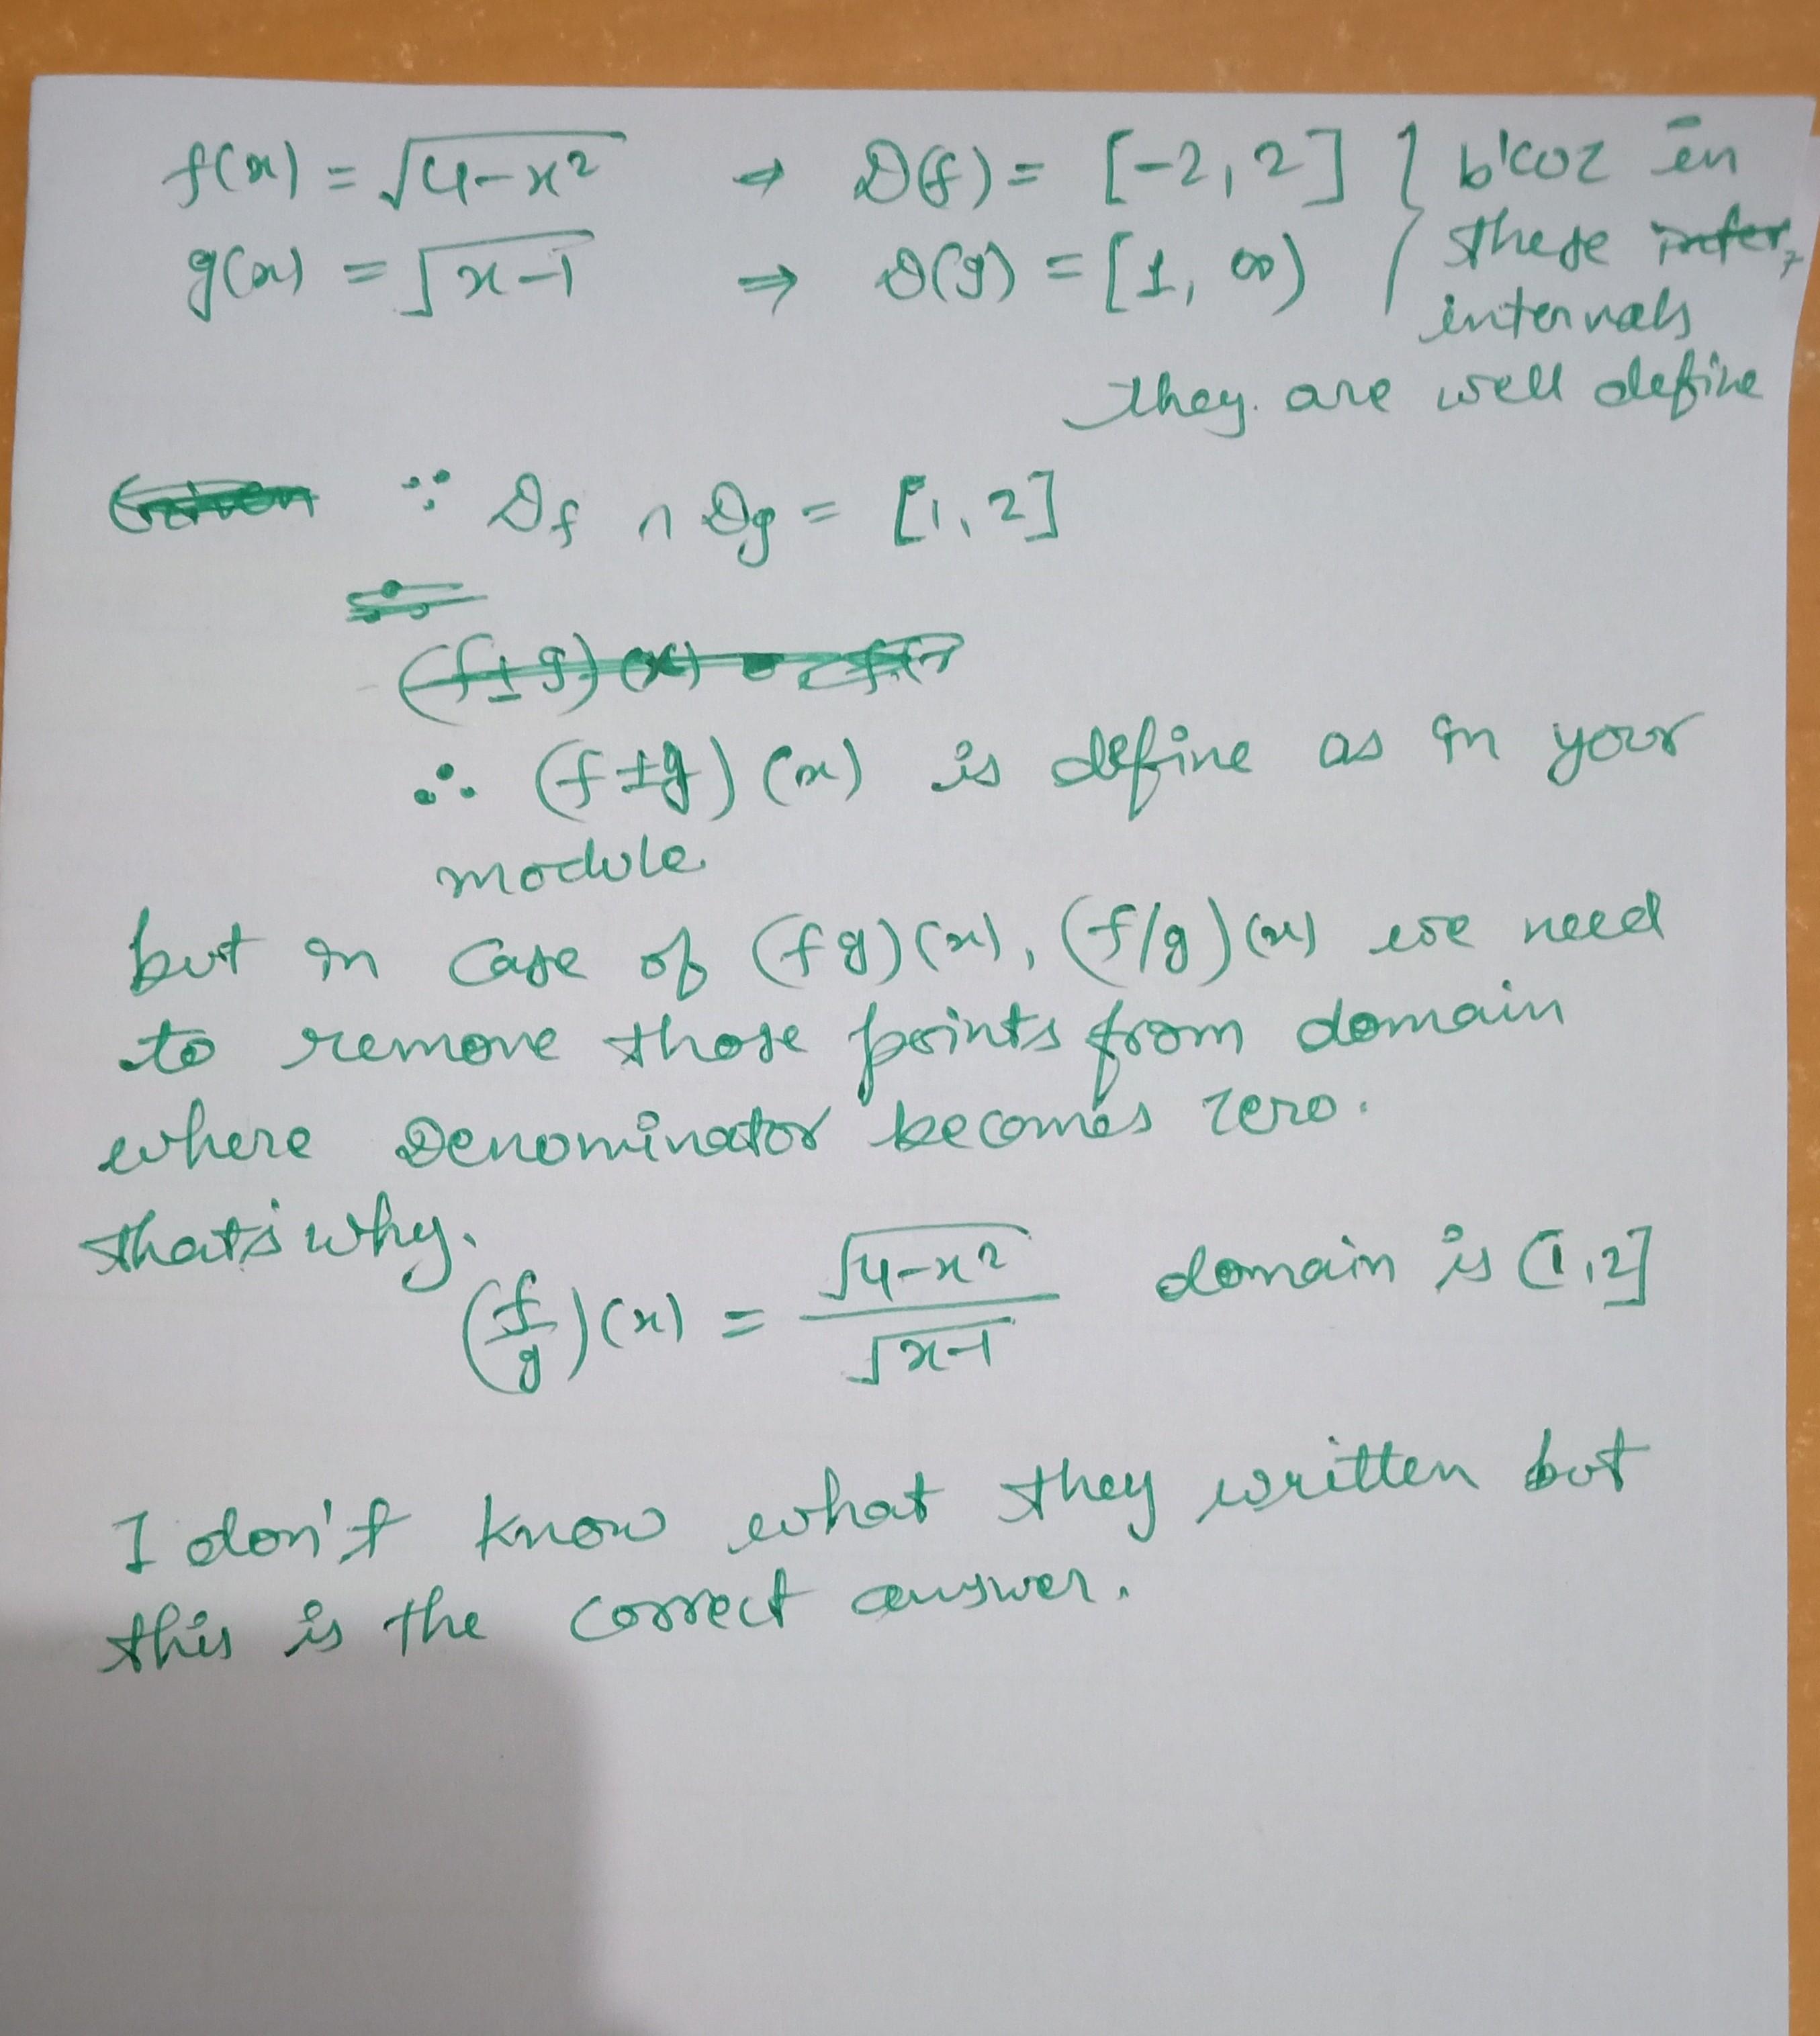 f(x) = √4-x² ⇒ D(f) = [-2, 2] } b'coz in
g(x) = √x-1 ⇒ D(g) = [1, ∞) these
intervals
they are well define
∵ Df ∩ Dg = [1, 2]
(f±g)(x)
∴ (f±g)(x) is define as in your
module
but in case of (fg)(x), (f/g)(x) we need
to remove those points from domain
where Denominator becomes zero.
that's why.
(f/g)(x) = √4-x² / √x-1 domain is (1,2]
I don't know what they written but
this is the correct answer.